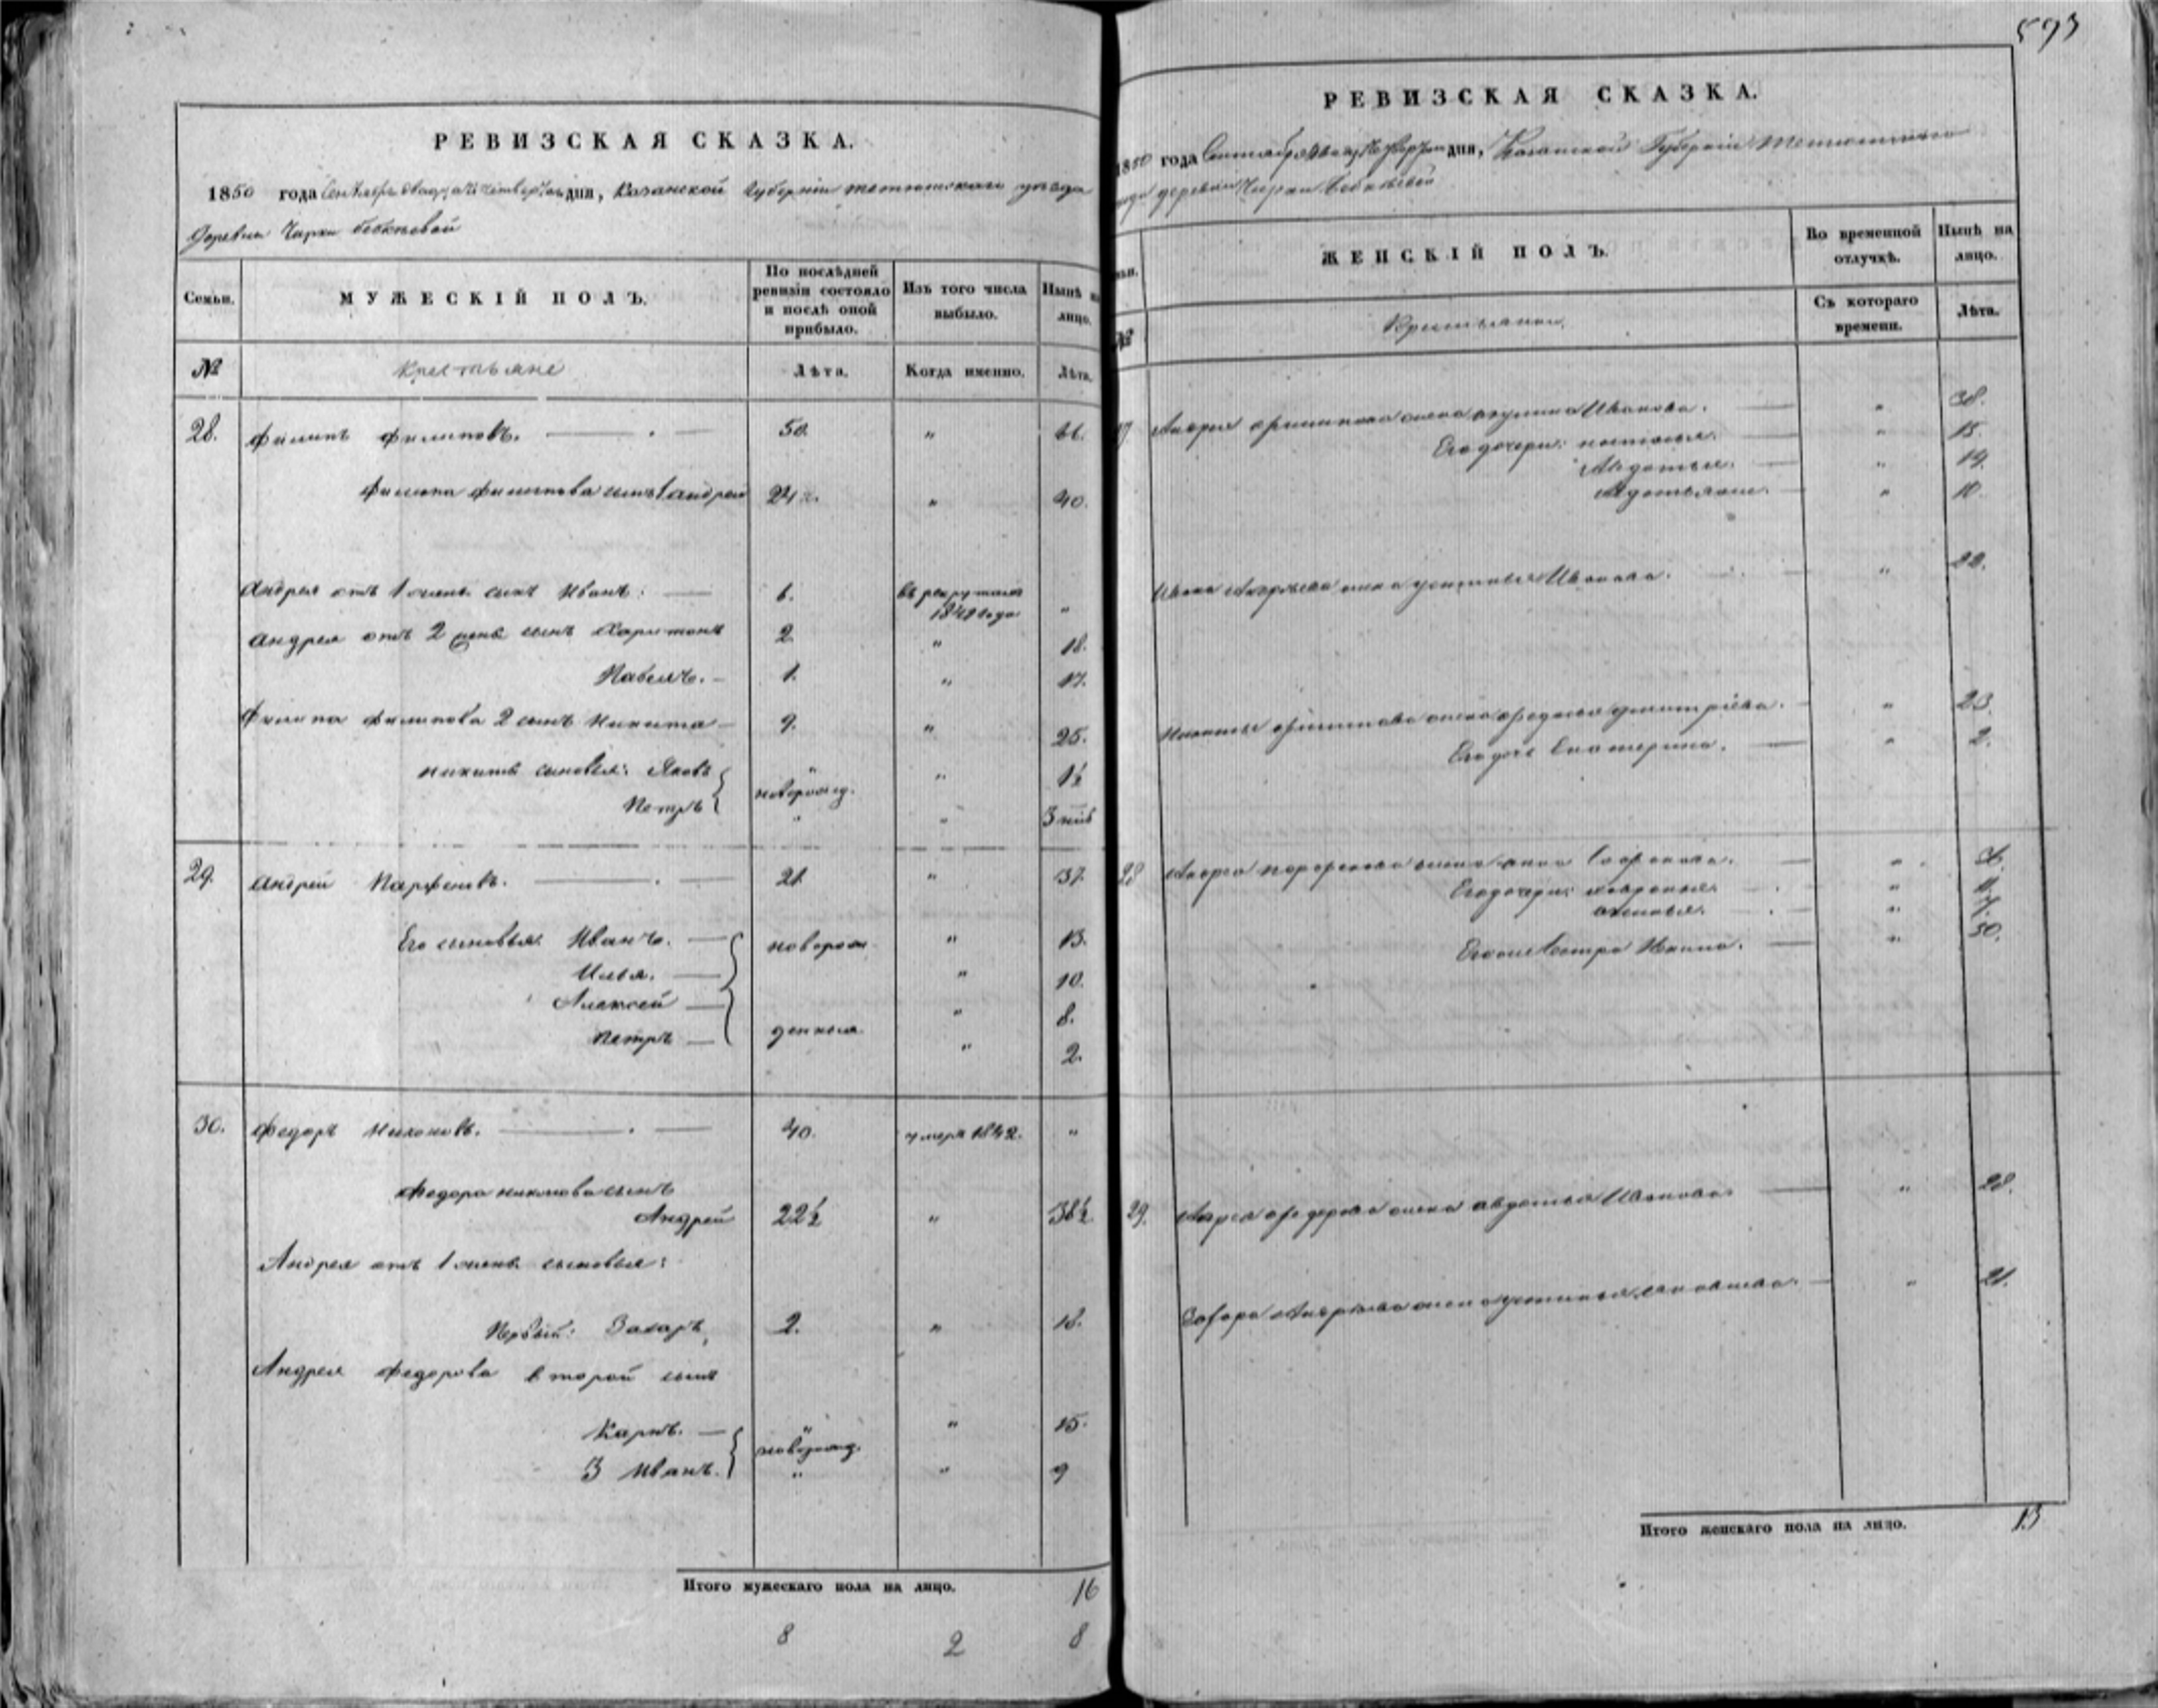 РЕВИЗСКАЯ СКАЗКА.
1850 года Сентября двадцать четвертаго дня, Казанской Губерніи Тетюшскаго уезда
деревни Чирки Бебкѣевой
Семьи.
МУЖЕСКІЙ ПОЛЪ.
По послѣдней ревизіи состояло и послѣ оной прибыло.
Изъ того числа выбыло.
Нынѣ на лицо.
№
Крестьяне
Лѣта.
Когда именно.
Лѣта.
28. Филипъ Филиповъ. 50. " 66.
Филипа Филипова сынъ 1 Андрей 24 " 40.
Андрея отъ 1 жены сынъ Иванъ: 6. въ рекрутахъ 1849 года "
Андрея отъ 2 жены сынъ Харитонъ 2. " 18.
Павелъ. 1. " 17.
Филипа Филипова 2 сынъ Никита 9. " 25.
Никиты сыновья: Яковъ " " 1½
Петръ новорожд. " " 3 нед
29. Андрей Парфеновъ. 21. " 37.
Его сыновья: Иванъ. новорож " 13.
Илья. " 10.
Алексей " 8.
Петръ денные. " 2.
30. Федоръ Никоновъ. 40. умеръ 1842. "
Федора Никонова сынъ
Андрей 22½ " 38½.
Андрея отъ 1 жены сыновья:
Первый: Захаръ 2. " 18.
Андрея Федорова второй сынъ
Карпъ. " " 15.
3 Иванъ. новорожд. " " 9
Итого мужескаго пола на лицо. 16
8 2 8
593
РЕВИЗСКАЯ СКАЗКА.
1850 года Сентября двадцать четвертаго дня, Казанской Губерніи Тетюшскаго
уезда деревни Чирки Бебкѣевой
№
ЖЕНСКІЙ ПОЛЪ.
Во временной отлучкѣ.
Нынѣ на лицо.
Крестьянки.
Съ котораго времени.
Лѣта.
Андрея Филипова жена Акулина Иванова. " 38.
Его дочери: Настасья. " 15.
Авдотья. " 14.
" 10.
Ивана Андреева жена Устинья Иванова. " 22.
Никиты Филипова жена Федосья Дмитріева. " 23.
Его дочь Екатерина. " 2.
28 Андрея Парфенова жена Анна Сафонова. " 36.
Его дочери: Ховронья. " 11.
" 7.
Его сестра " 30.
29. Андрея Федорова жена Авдотья Иванова. " 28.
Захара Андреева жена Устинья " 21.
Итого женскаго пола на лицо. 13